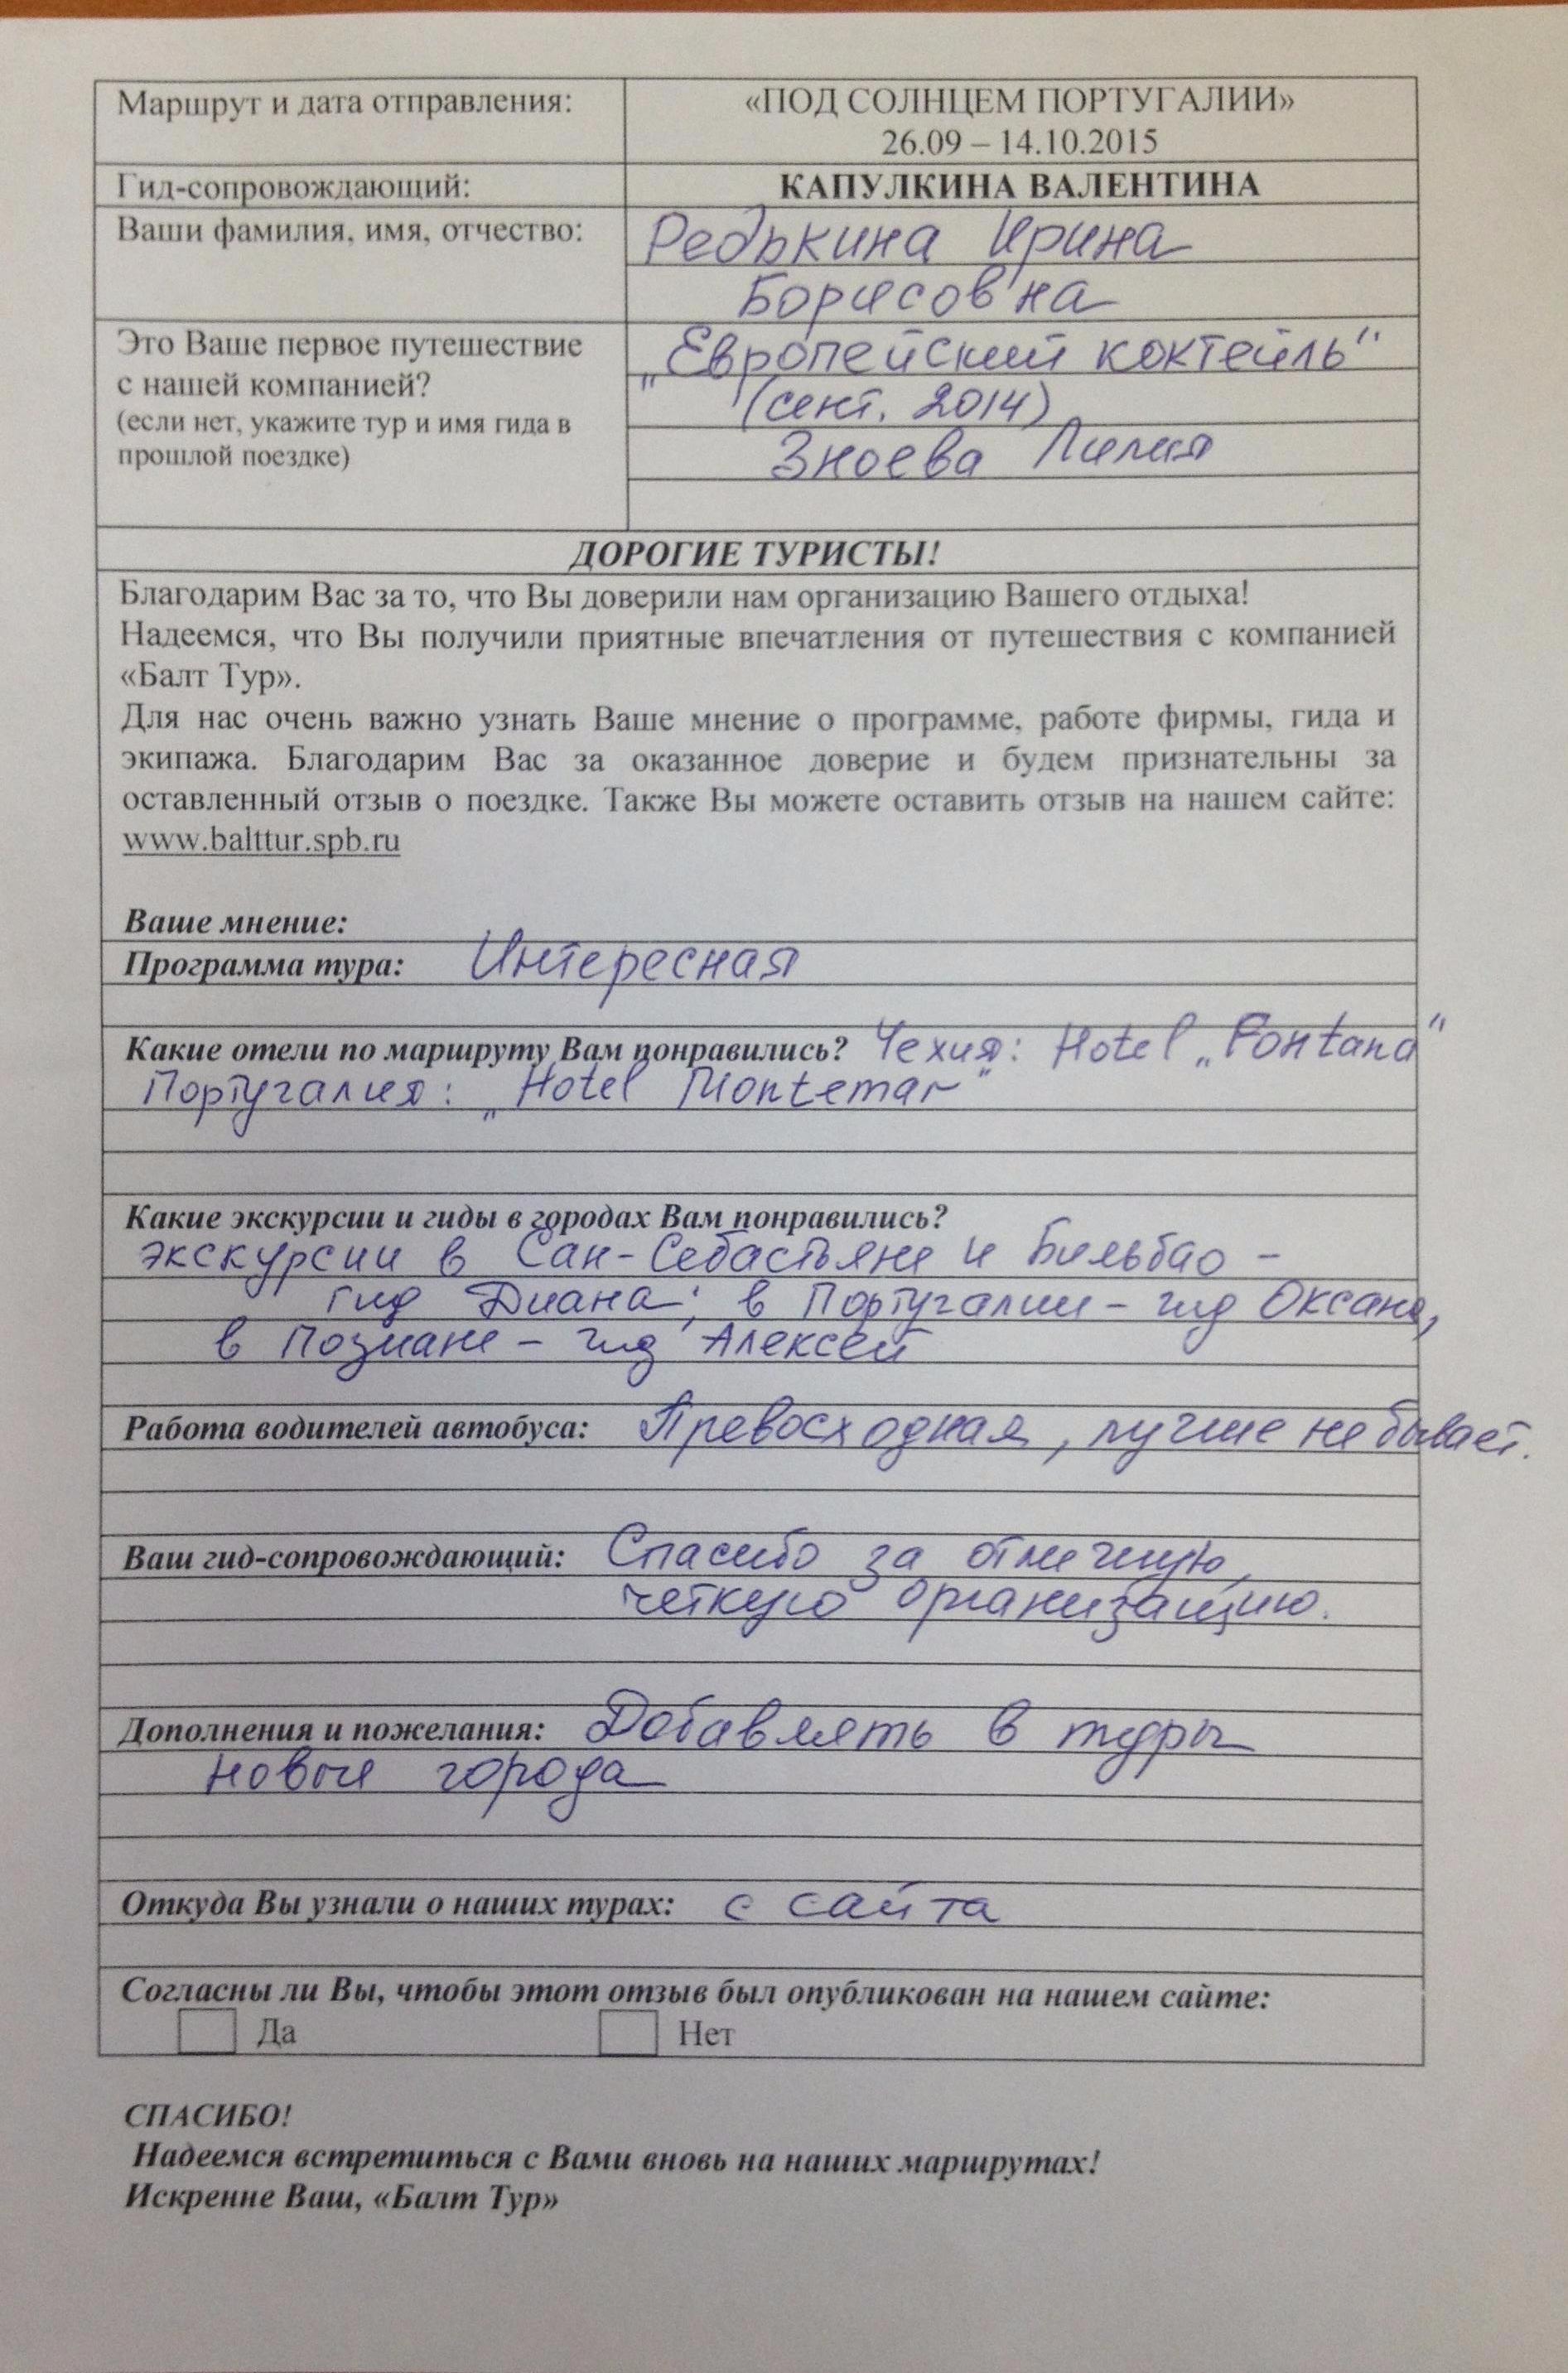 Маршрут и дата отправления:
«ПОД СОЛНЦЕМ ПОРТУГАЛИИ»
26.09 – 14.10.2015
Гид-сопровождающий:
КАПУЛКИНА ВАЛЕНТИНА
Ваши фамилия, имя, отчество:
Редькина Ирина
Борисовна
Это Ваше первое путешествие
с нашей компанией?
(если нет, укажите тур и имя гида в
прошлой поездке)
„Европейский коктейль“
(сент. 2014)
Зноева Лилия
ДОРОГИЕ ТУРИСТЫ!
Благодарим Вас за то, что Вы доверили нам организацию Вашего отдыха!
Надеемся, что Вы получили приятные впечатления от путешествия с компанией
«Балт Тур».
Для нас очень важно узнать Ваше мнение о программе, работе фирмы, гида и
экипажа. Благодарим Вас за оказанное доверие и будем признательны за
оставленный отзыв о поездке. Также Вы можете оставить отзыв на нашем сайте:
www.balttur.spb.ru
Ваше мнение:
Программа тура: Интересная
Какие отели по маршруту Вам понравились? Чехия: Hotel „Fontana“
Португалия: „Hotel Montemar“
Какие экскурсии и гиды в городах Вам понравились?
экскурсии в Сан-Себастьяне и Бильбао –
гид Диана; в Португалии – гид Оксана,
в Познане – гид Алексей
Работа водителей автобуса: Превосходная, лучше не бывает.
Ваш гид-сопровождающий: Спасибо за отличную,
четкую организацию.
Дополнения и пожелания: Добавлять в туры
новые города
Откуда Вы узнали о наших турах: с сайта
Согласны ли Вы, чтобы этот отзыв был опубликован на нашем сайте:
Да Нет
СПАСИБО!
Надеемся встретиться с Вами вновь на наших маршрутах!
Искренне Ваш, «Балт Тур»